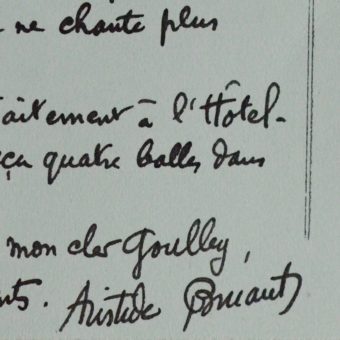 ne chante plus
aitement à l'Hôtel-
çu quatre balles dans
mon cher Goulley,
nts. Aristide Bruant